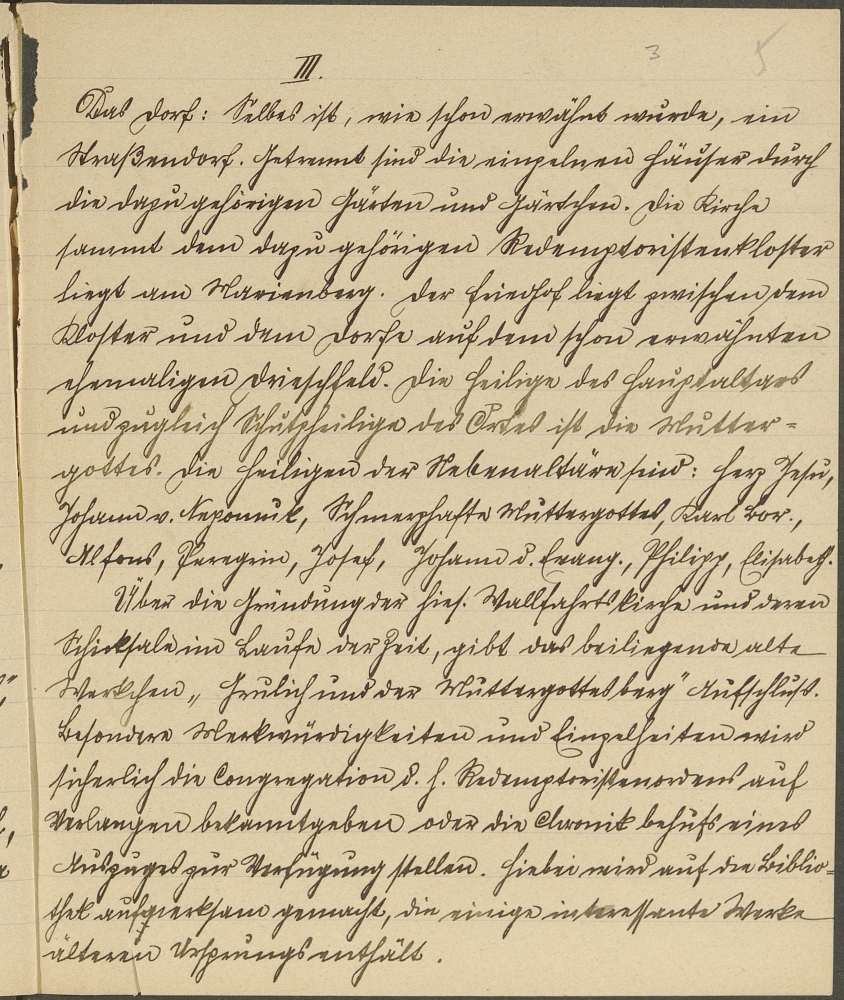 III. 3 5
Das Dorf: Selbes ist, wie schon erwähnt wurde, ein
Straßendorf. Getrennt sind die einzelnen Häuser durch
die dazu gehörigen Gärten und Gärtchen. Die Kirche
sammt dem dazu gehörigen Redemptoristenkloster
liegt am Marienberg. Der Friedhof liegt zwischen dem
Kloster und dem Dorfe auf dem schon erwähnten
ehemaligen Drieschfeld. Die Heilige des Hauptaltars
und zugleich Schutzheilige des Ortes ist die Mutter-
gottes. Die Heiligen der Nebenaltäre sind: Herz Jesu,
Johann v. Nepomuk, Schmerzhafte Muttergottes, Karl Bor.,
Alfons, Peregrin, Josef, Johann d. Evang., Philipp, Elisabeth.
Über die Gründung der hies. Wallfahrtskirche und deren
Schicksale im Laufe der Zeit, gibt das beiliegende alte
Werkchen „Grulich und der Muttergottesberg" Aufschluß.
Besondere Merkwürdigkeiten und Einzelheiten wird
sicherlich die Congregation d. h. Redemptoristenordens auf
Verlangen bekanntgeben oder die Chronik behufs eines
Auszuges zur Verfügung stellen. Hiebei wird auf die Biblio-
thek aufmerksam gemacht, die einige interessante Werke
älteren Ursprungs enthält.